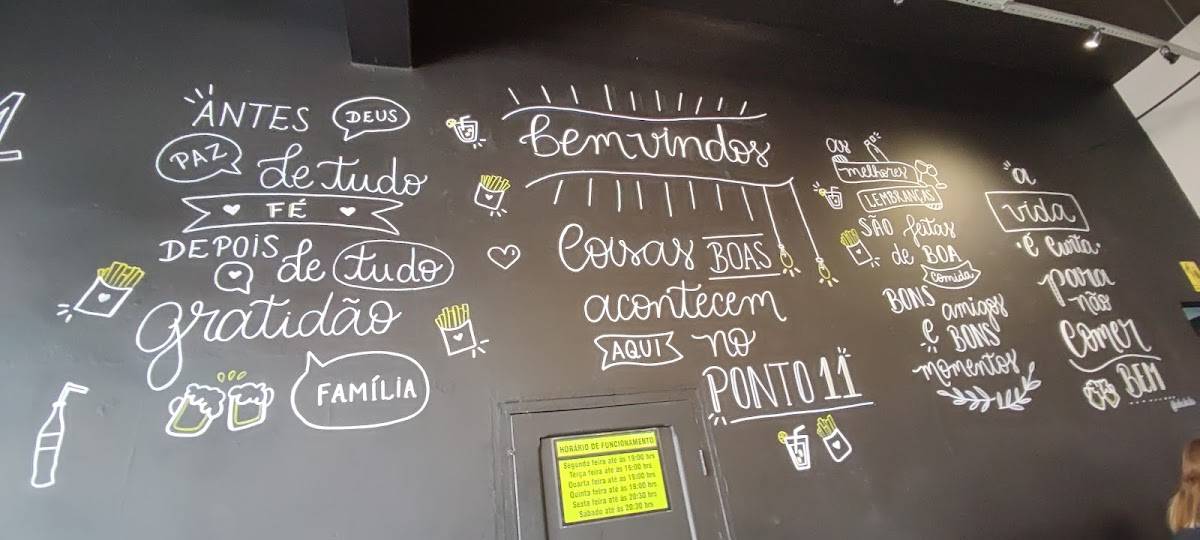 1
ANTES
DEUS
PAZ
de tudo
FÉ
DEPOIS de tudo
gratidão
FAMÍLIA
Bem vindos
Coisas BOAS
acontecem
AQUI no
PONTO 11
as
melhores
LEMBRANÇAS
SÃO feitas
de BOA
comida
BONS amigos
E BONS
momentos
a
vida
é curta
para
não
comer
BEM
HORÁRIO DE FUNCIONAMENTO
Segunda feira até às 19:00 hrs
Terça feira até às 15:00 hrs
Quarta feira até às 19:00 hrs
Quinta feira até às 19:00 hrs
Sexta feira até às 20:30 hrs
Sábado até às 20:30 hrs